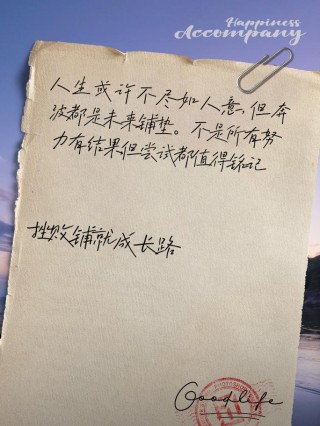 Happiness
Accompany
人生或许不尽如人意,但奔
波都是未来铺垫。不是所有努
力有结果,但尝试都值得铭记
挫败铺就成长路
Goodlife